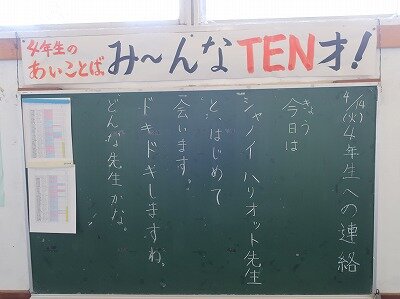 4年生の
あいことば
み〜んなTEN才!
4/4(火)4年生への連絡
きょう
今日は
シャノイ ハリオット先生
と、はじめて
会います。
ドキドキしますね。
どんな先生かな。